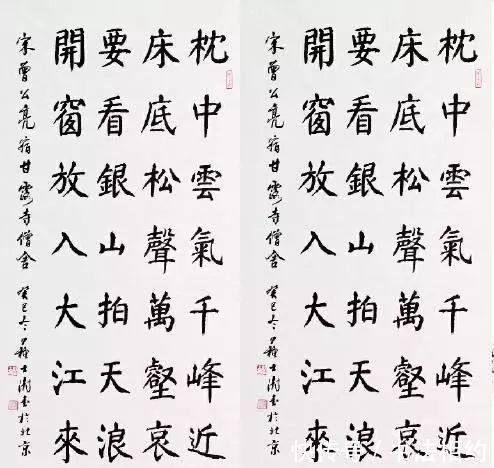 枕中雲氣千峰近
床底松聲萬壑哀
要看銀山拍天浪
開窗放入大江來
宋曾公亮宿甘露寺僧舍 癸巳冬 蘇士澍书於北京
枕中雲氣千峰近
床底松聲萬壑哀
要看銀山拍天浪
開窗放入大江來
宋曾公亮宿甘露寺僧舍 癸巳冬 蘇士澍书於北京
书法相约